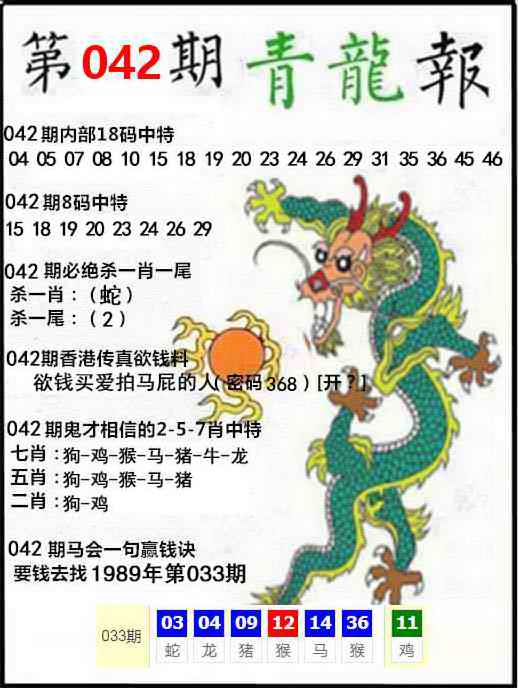 第042期青龍報
042期内部18码中特
04 05 07 08 10 15 18 19 20 23 24 26 29 31 35 36 45 46
042期8码中特
15 18 19 20 23 24 26 29
042 期必绝杀一肖一尾
杀一肖：（蛇）
杀一尾：（2）
042期香港传真欲钱料
欲钱买爱拍马屁的人（密码368）[开？]
042期鬼才相信的2-5-7肖中特
七肖：狗-鸡-猴-马-猪-牛-龙
五肖：狗-鸡-猴-马-猪
二肖：狗-鸡
042 期马会一句赢钱诀
要钱去找1989年第033期
033期 03 04 09 12 14 36 11
蛇 龙 猪 猴 马 猴 鸡